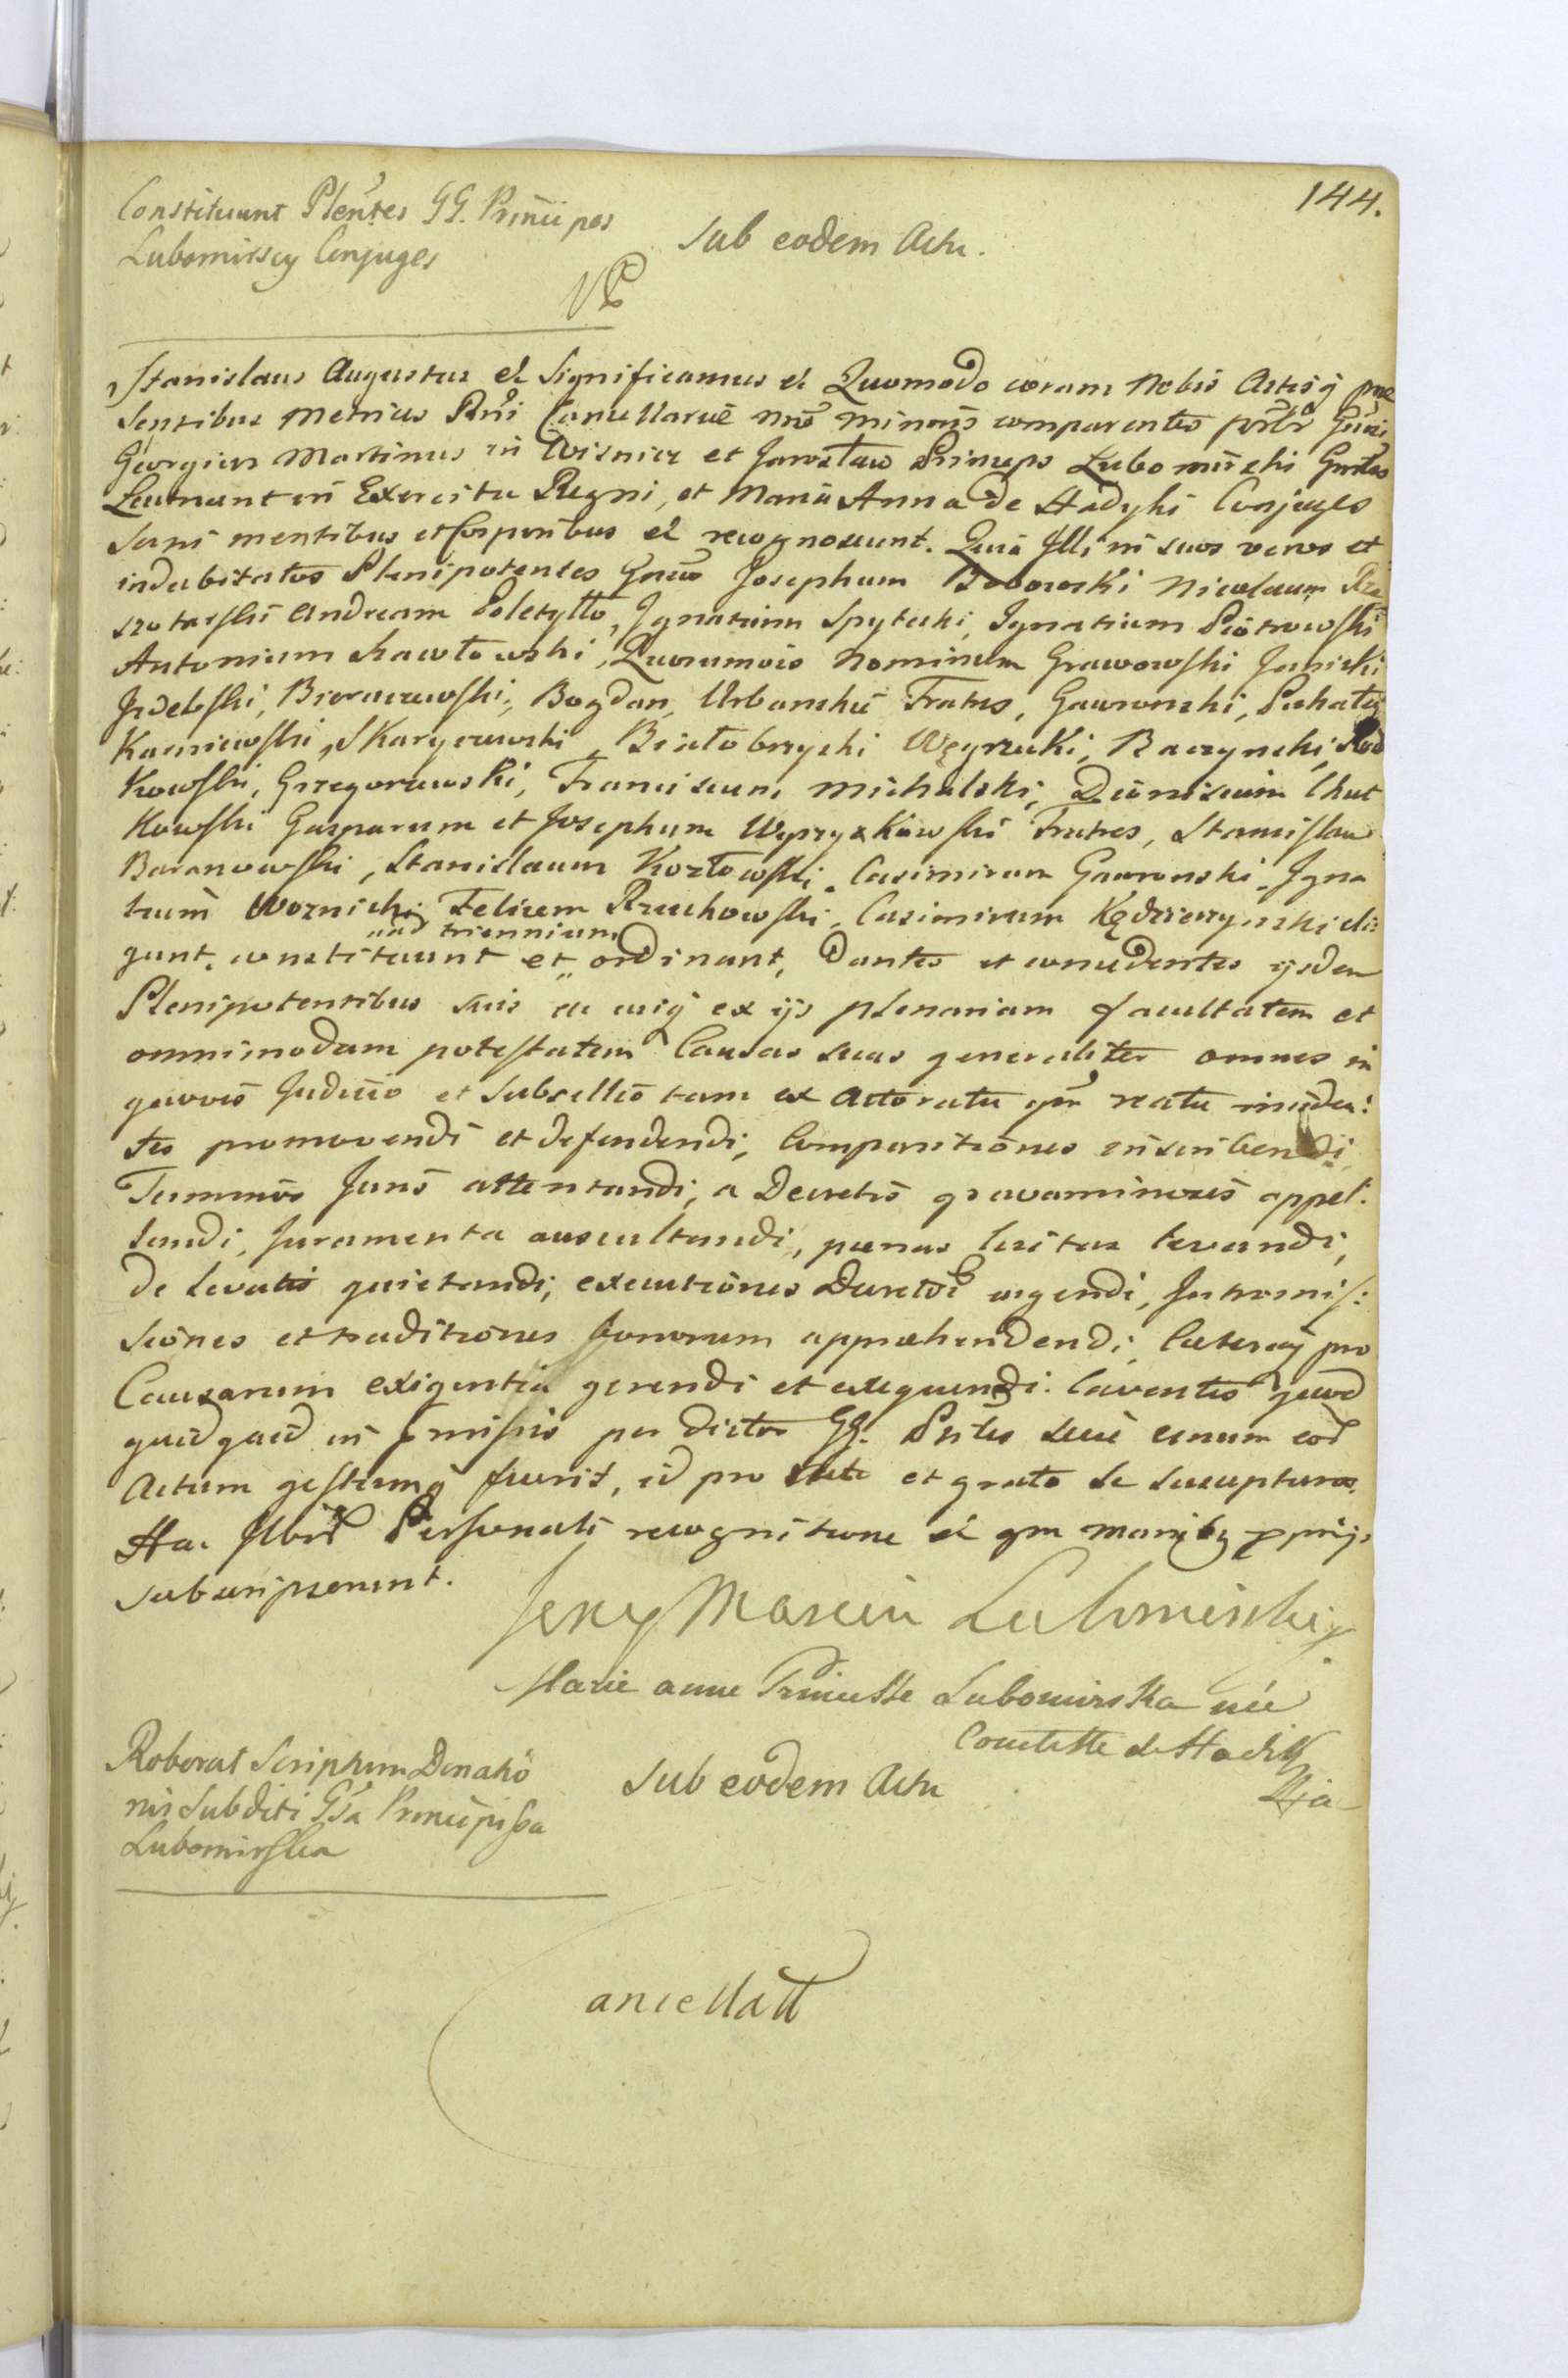 144.
Constituunt Plentes GG. Principes
Lubomirscy Conjuges
Sub eodem Actu.
Stanislaus Augustus et Significamus et Quomodo coram Nobis Actisq prae
sentibus Metrices Rni Cancellariae nrae Minoris comparentes pnlr Gnsi
Georgius Martinus in Wisnicz et Jarosław Princeps Lubomirski Gnrlis
Leutnant in Exercitu Regni, et Maria Anna de Hadyki Conjuges
Sani mentibus et Corporibus et recognoverunt. Quia Illi in suos veros et
indubitatos Plenipotentes Gnsos Josephum Bobowski Nicolaum Rze
szotarski Andream Poletyłło, Ignatium Spytecki, Ignatium Piotrowski
Antonium Pawłowski, Quorumvis Nominum Grawowski Janicki
Jrdebski, Biernczewski, Bogdan, Urbanskie Fratres, Gawronski, Puchały
Karniewski, Skaryszewski, Białobrzeski Węgrzecki, Raczynski, Rad
kowski, Grzegorzewski, Franciscum Michalski, Dionisium Chut
kowski Gasparum et Josephum Wyprzyxkowski Fratres, Stanislau
Baranowski, Stanislaum Kozłowski, Casimirum Gawronski, Igna
tium Woznicki, Felicem Rzuchowski, Casimirum Kędzierzynski eli:
ad triennium
gunt, constituunt et ordinant, Dantes et concedentes ijsdem
Plenipotentibus suis ac cuiq ex ijs plenariam facultatem et
omnimodam potestatem Causas suas generaliter omnes in
quovis Judicio et Subsellio tam ex Actoratu qm reatu inciden:
tes promovendi et defendendi, Comparitiones inscribendi,
Terminos Juris attentandi, a Decretis gravaminosis appel:
landi, Juramenta auscultandi, paenas luitas levandi,
de levatis quietandi, executiones Decretor urgendi, Intromis:
siones et traditiones bonorum appraehendendi, Caeteraq pro
Causarum exigentia gerendi et exequendi. Caventes quod
quidquid in pmissis per dictos GG. Pntes seu unum eor
Actum gestumq fuerit, id pro rato et grato se suscepturos.
Hac Illor Personali recognitione et qm manibq pprijs
subscripserunt.
Jerzy Marcin Lubomirski
Marie anne Princesse Lubomirska née
Comtesse de Hadik
Roborat Scriptum Donatio
nis Subditi Gsa Principissa
Lubomirska
Sub eodem Actu
Cancellatt